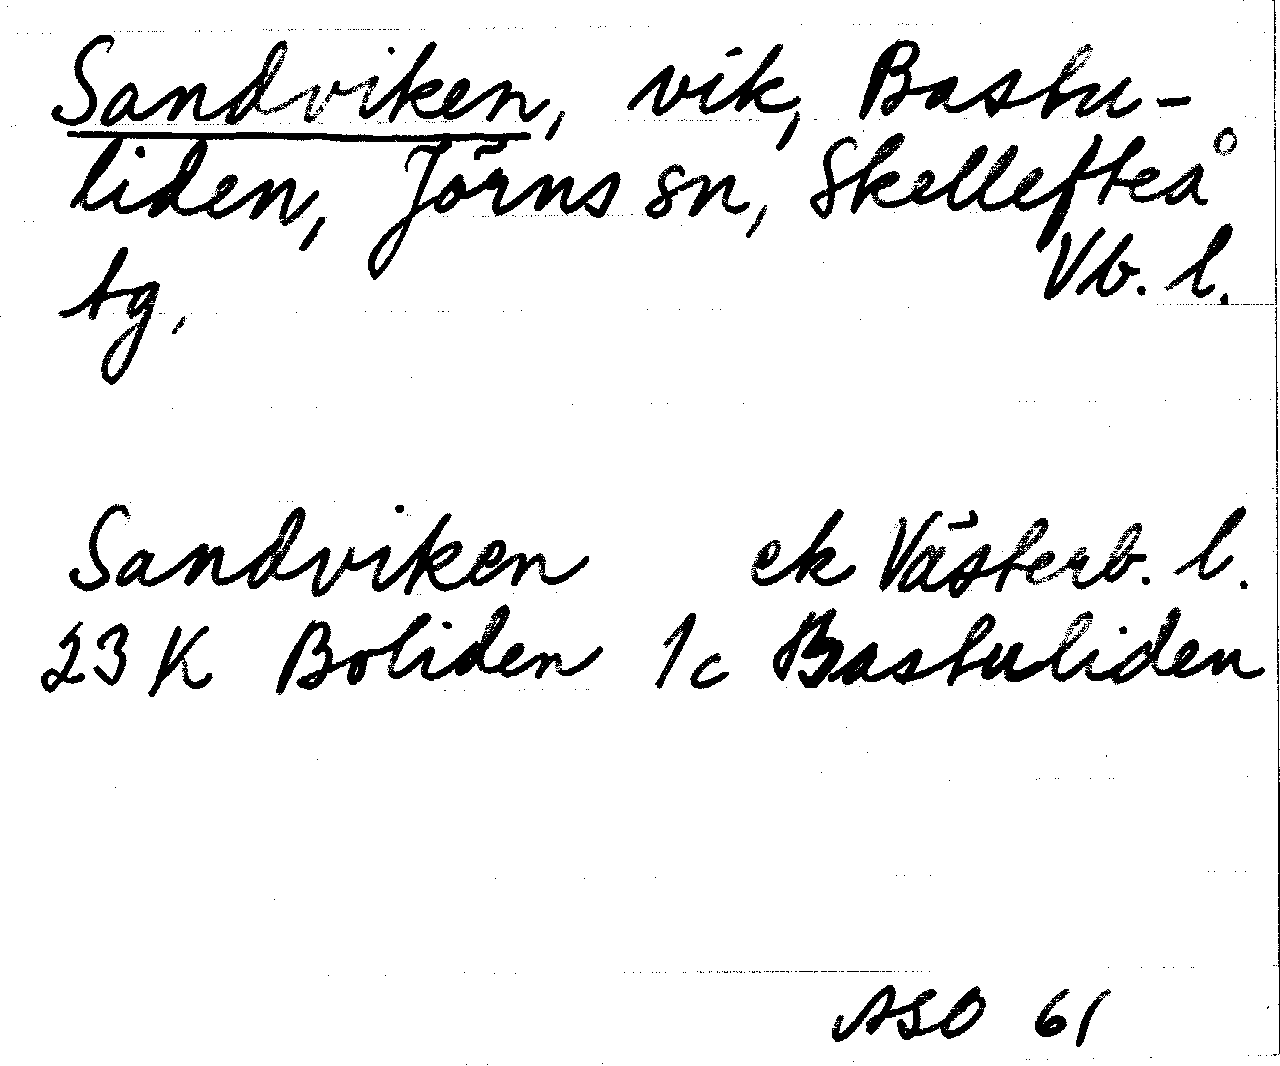 Sandviken, vik, Bastu-
liden, Jörns sn, Skellefteå
tg, Vb. l.
Sandviken ek Västerb. l.
23 K Boliden 1c Bastuliden
ASO 61